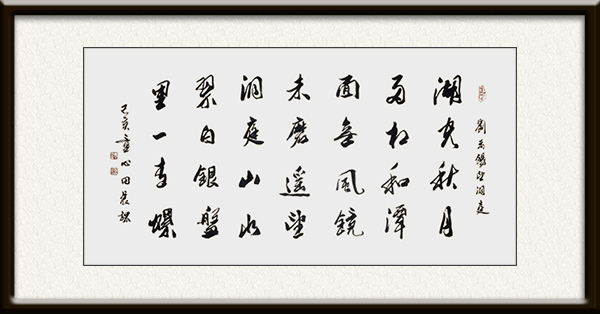 劉禹錫望洞庭
湖光秋月
兩相和潭
面無風鏡
未磨遙望
洞庭山水
翠白銀盤
里一青螺
己亥心田